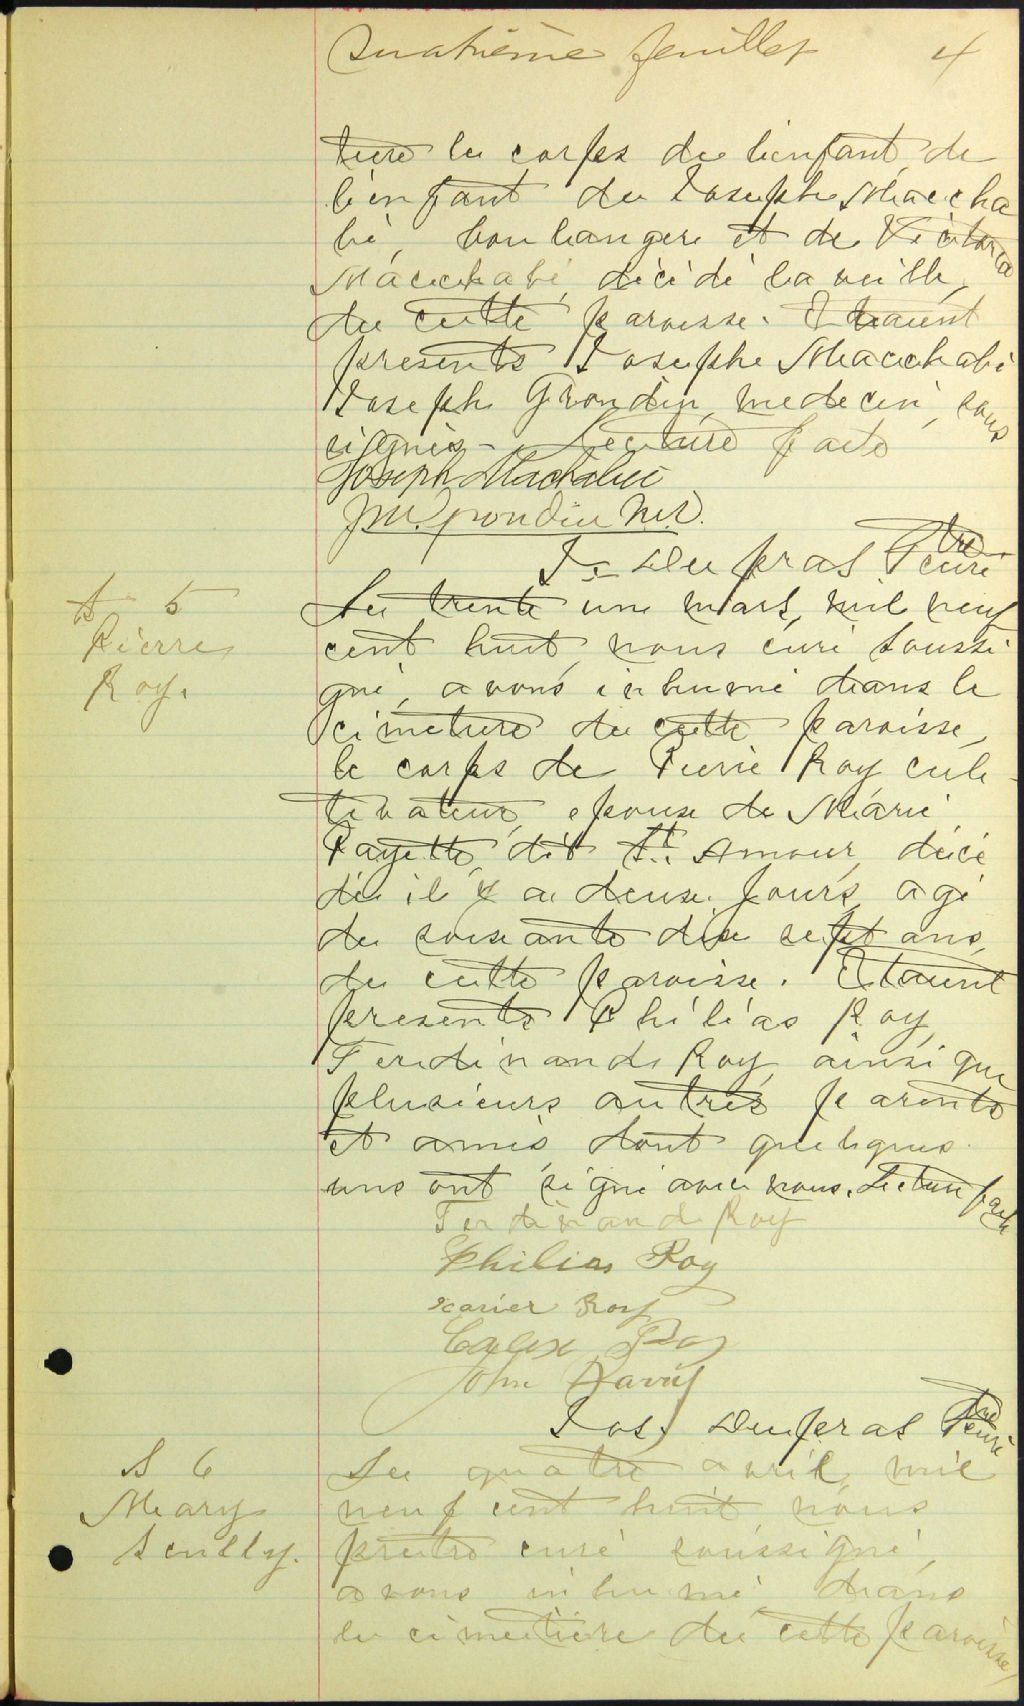 Quatrième feuillet 4
tiere le corps de l'enfant de
l'enfant de Joseph Maccha
bé, boulanger et de Victoria
Macchabé, décédé la veille,
de cette paroisse. Etaient
presents Joseph Macchabé
Joseph Grondin, medecin, sous
signés - Lecture faite
Joseph Machabée
J.W. Grondin M.D.
J= Dupras Ptre curé
S 5
Pierre
Roy.
Le trente un mars, mil neuf
cent huit, nous curé soussi
gné, avons inhumé dans le
cimetiere de cette paroisse,
le corps de Pierre Roy cul-
tivateur, epoux de Marie
Payette, dit St. Amour, décé
dé il y a deux jours, agé
de soixante dix sept ans,
de cette paroisse. Etaient
presents Philias Roy,
Ferdinand Roy, ainsi que
plusieurs autres parents
et amis dont quelques
uns ont signé avec nous. Lecture faite
Ferdinand Roy
Philias Roy
xavier Roy
Calix Roy
John
Jos. Dupras Ptre curé
S 6
Mary
Scully.
Le quatre avril, mil
neuf cent huit, nous
prêtre curé soussigné,
avons inhumé dans
le cimetière de cette paroisse,